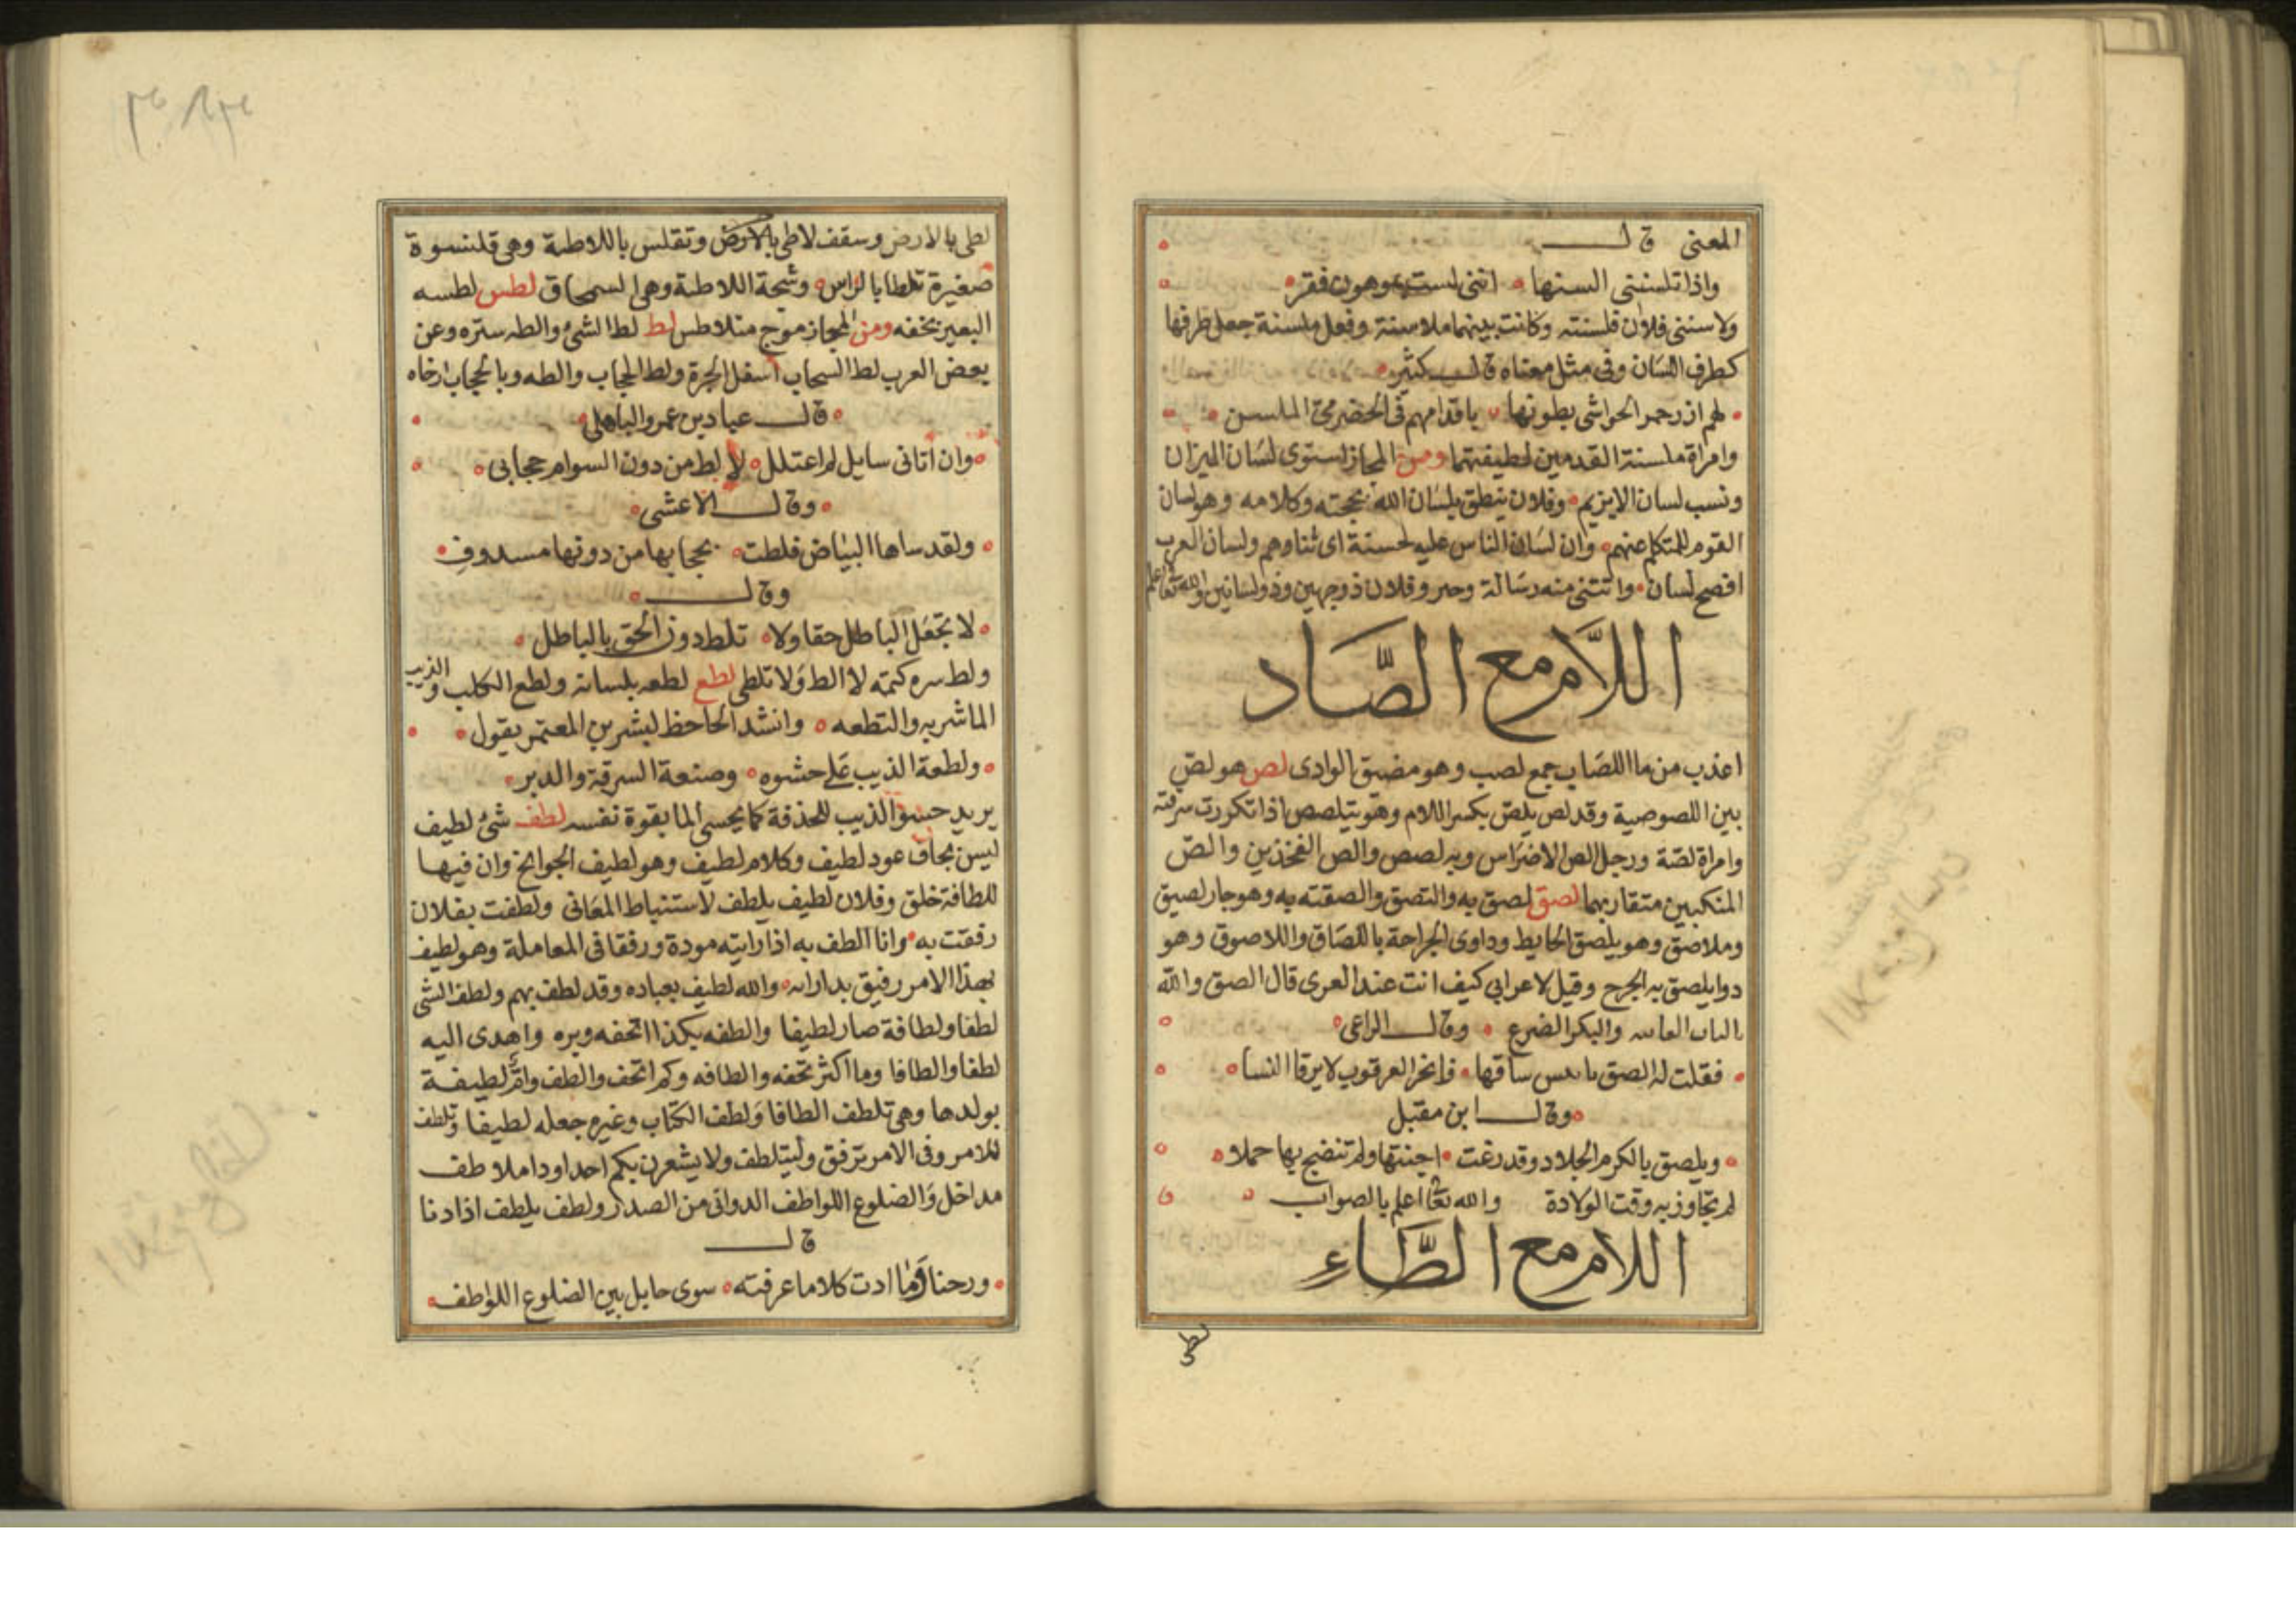 المعنى قال
واذا تلسننى السنها انى لست بموهون فقر
ولاسننى فلان فلسنته وكانت بينهما ملاسنة وفعل ملسنة جعل طرفها
كطرف اللسان وفى مثل معناه قال كثير
لهم ازر حمر الحواشى بطونها باقدامهم فى الحضرمى الملسن
وامراة ملسنة القدمين لطيفتهما ومن المجاز استوى لسان الميزان
ونسب لسان الابزيم وفلان ينطق بلسان الله بحجته وكلامه وهو لسان
القوم المتكلم عنهم وان لسان الناس عليه لحسنة اى ثناوهم ولسان العرب
افصح لسان واتتنى منه رسالة وفلان ذو وجهين وذو لسانين والله تعا اعلم
اللام مع الصاد
اعذب من ما اللصاب جمع لصب وهو مضيق الوادى لص هو لص
بين اللصوصية وقد لص يلص بكسر اللام وهو يتلصص اذا تكررت سرقته
وامراة لصة ورجل الص الاضراس وبه لصص والص الفخذين والص
المنكبين متقاربهما لصق لصق به والتصق والصقته به وهو جار لصيق
وملاصق وهو بلصق الحايط وداوى الجراحة باللصاق واللاصوق وهو
دوا يلصق به الجرح وقيل لاعرابى كيف انت عند العرى قال الصق والله
بالناب الفانيه والبكر الضرع وقال الراعى
فقلت له الصق ساقها فانحر العرقوب لا يرقا النسا
وقال ابن مقبل
ويلصق بالكرم الجلاد وقد رغت اجنتها ولم تنضج بها حملا
لم تجاوز به وقت الولادة والله تعا اعلم بالصواب
اللام مع الطاء
لطى
لطى بالارض وسقف لاطى بالارض وتقلس باللاطية وهى قلنسوة
صغيرة تلطا بالراس وشجة اللاطية وهى السمحاق لطس لطسه
البعير بخفه ومن المجاز موج متلاطس لط لط الشئ والطه ستره وعن
بعض العرب لط السحاب اسفل الحرة ولط الحجاب والطه وبالحجاب ارخاه
قال عباد بن عمرو الباهلى
وان اتانى سايل لم اعتلل لا لط من دون السوام حجابى
وقال الاعشى
ولقد ساها البياض فلطت بحجاب من دونها مسدوف
وقال
لا تجعل الباطل حقا ولا تلط دون الحق بالباطل
ولط سره كتمه لا الط ولا تلطى لطع لطعه بلسانه ولطع الكلب والذيب
الما شربه والتطعه وانشد الجاحظ لبشر بن المعتمر يقول
ولطعة الذيب على حشوه وصنعة السرقة والدبر
يريد حسو الذيب للحذقة كما يحسى الما بقوة نفسه لطف شئ لطيف
ليس بجاف عود لطيف وكلام لطيف وهو لطيف الجوانح وان فيها
للطافة خلق وفلان لطيف يلطف لاستنباط المعانى ولطفت بفلان
رفقت به وانا الطف به اذا رايته مودة ورفقا فى المعاملة وهو لطيف
بهذا الامر رفيق بداراته والله لطيف بعباده وقد لطف بهم ولطف الشى
لطفا ولطافة صار لطيفا والطفه بكذا اتحفه وبره واهدى اليه
لطفا والطافا وما اكثر تحفه والطافه وكم اتحف والطف وام لطيفة
بولدها وهى تلطف الطافا ولطف الكتاب وغيره جعله لطيفا وتلطف
للامر وفى الامر ترفق وليتلطف ولا يشعرن بكم احدا وداملاطف
مداخل والضلوع اللواطف الدوانى من الصدر ولطف يلطف اذا دنا
قال
ورحنا وما ادت كلاما عرفته سوى حايل بين الضلوع اللواطف